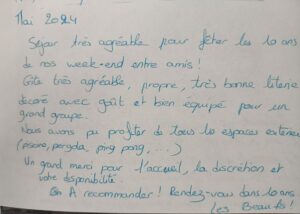 Mai 2024
Séjour très agréable pour fêter les 10 ans
de nos week-end entre amis!
Gîte très agréable, propre, très bonne literie
décoré avec goût et bien équipé pour un
grand groupe.
Nous avons pu profiter de tous les espaces extérieurs
(piscine, pergola, ping pong, ...)
Un grand merci pour l'accueil, la discrétion et
votre disponibilité.
On A recommander! Rendez-vous dans 10 ans
Les